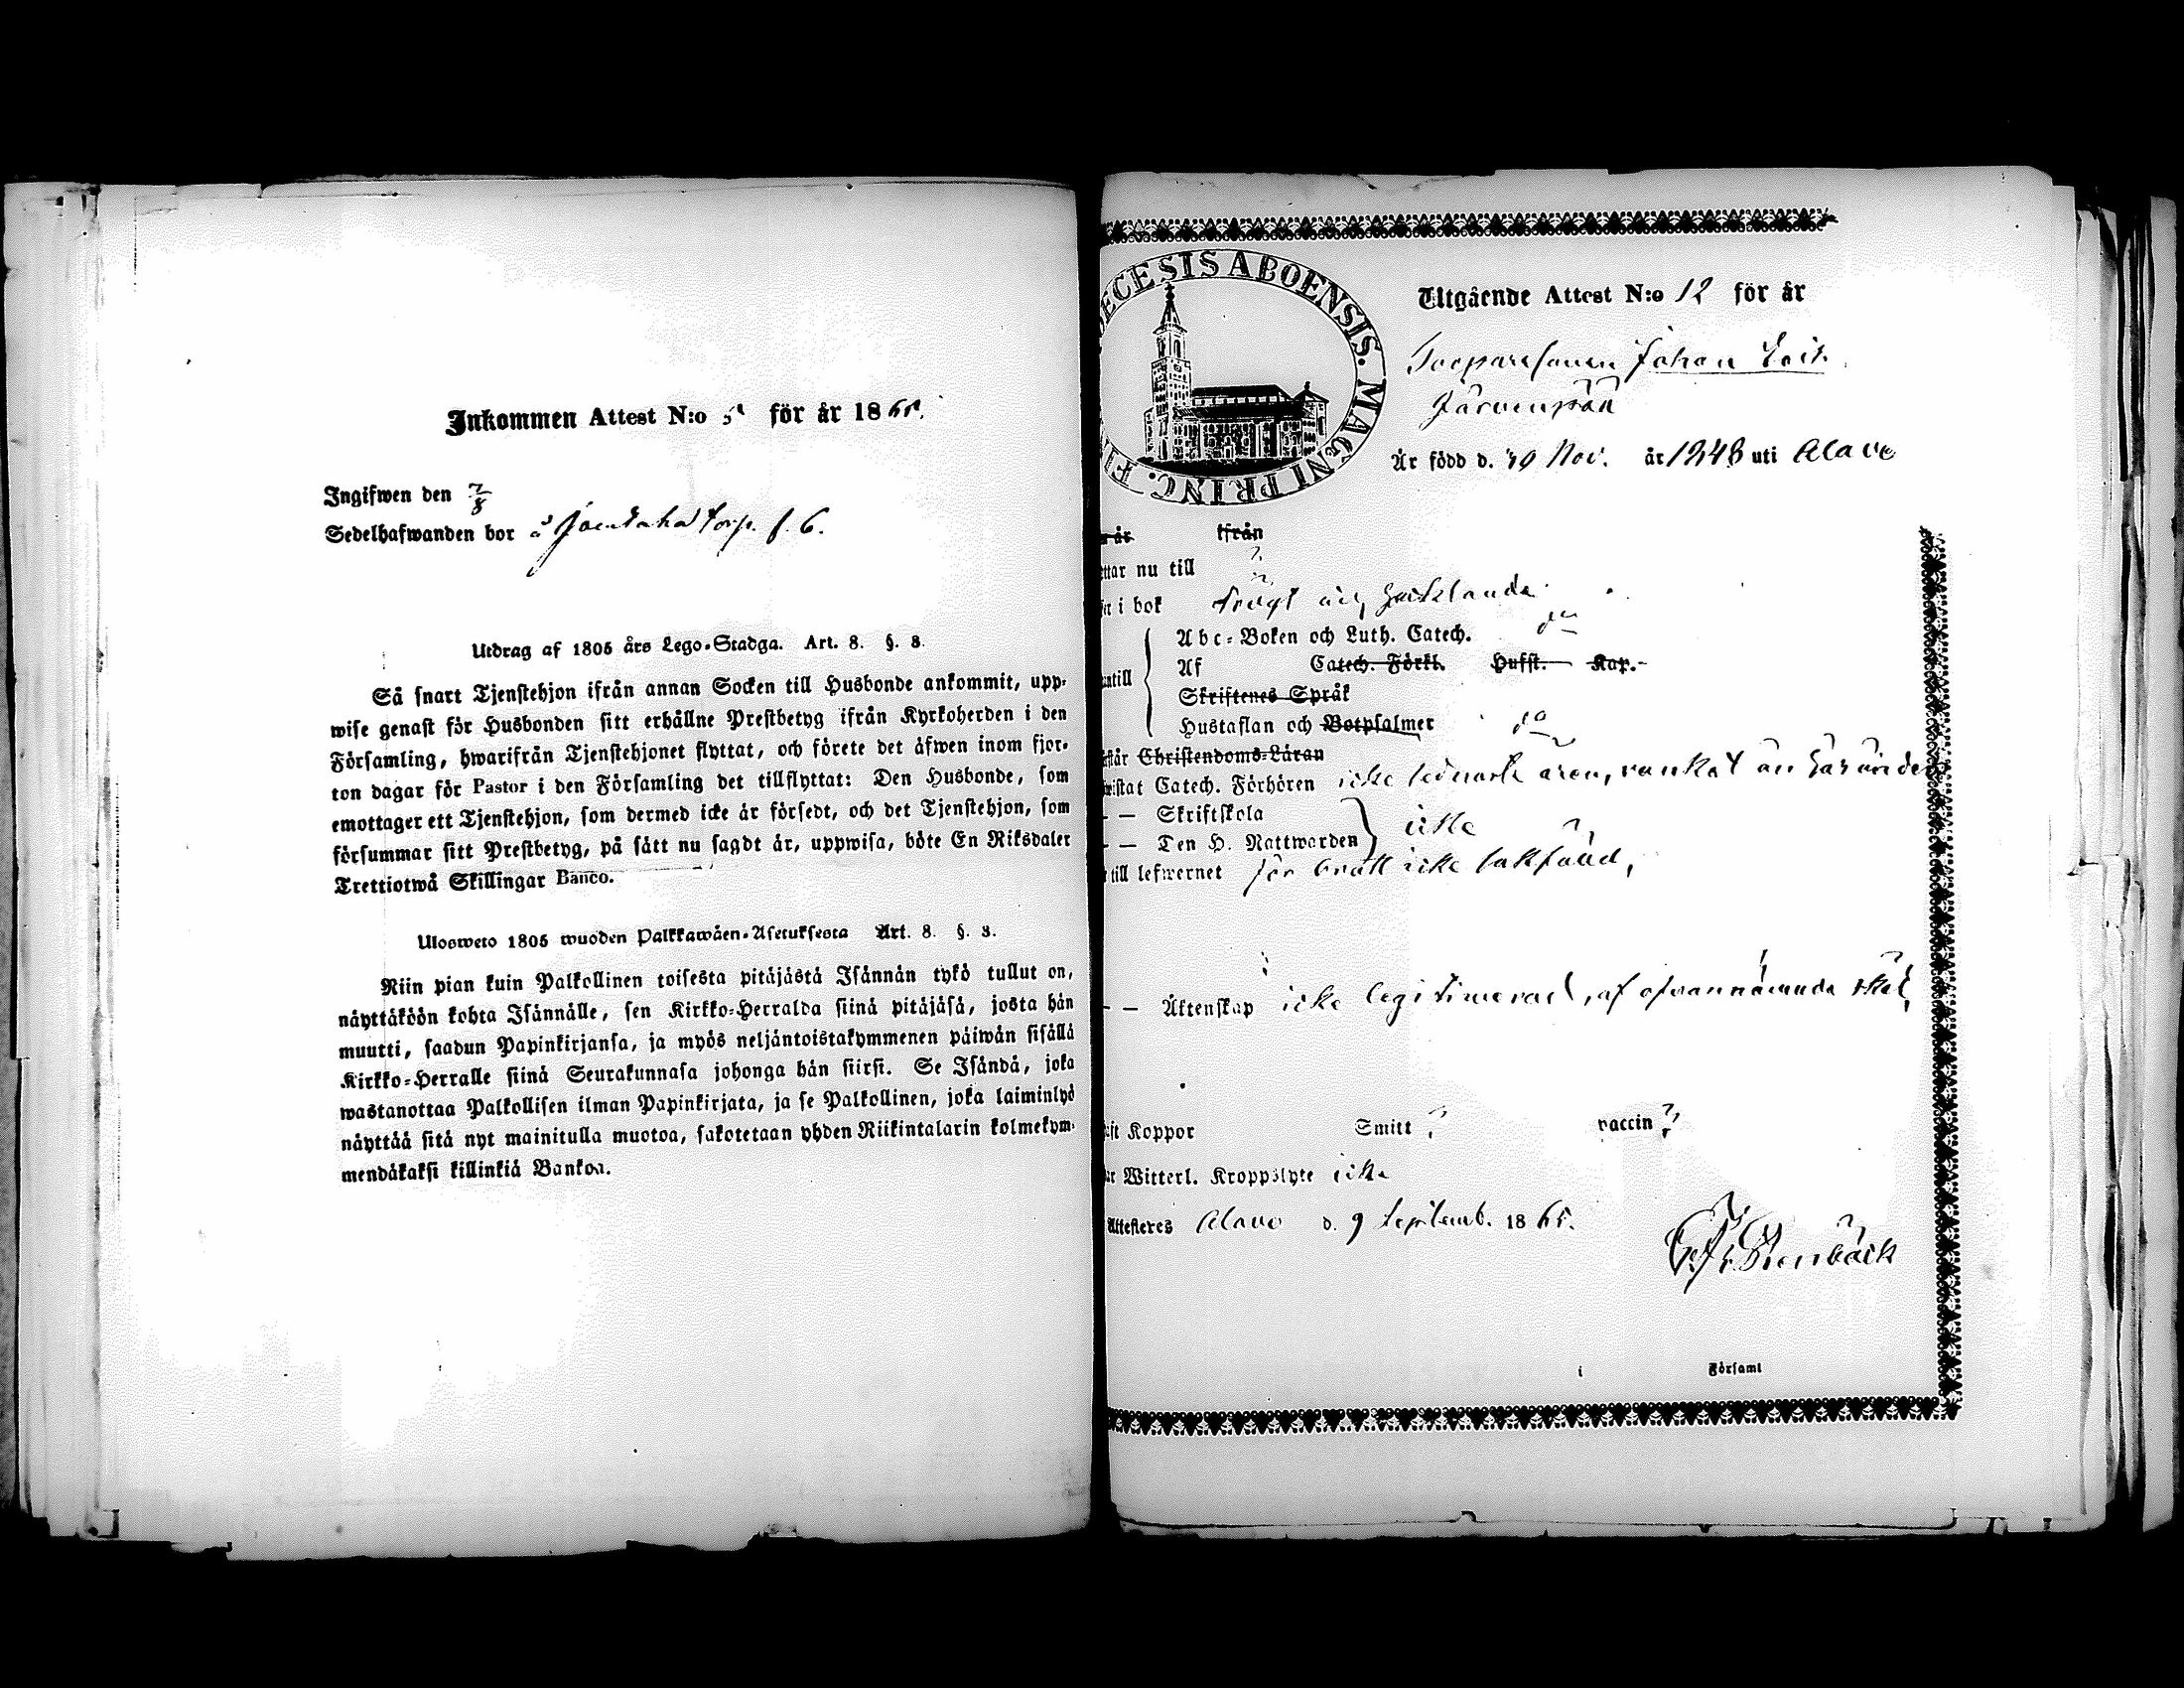 Inkommen Attest N:o 5 för år 1865.
Ingifwen den 7/8
Sedelhafwanden bor å torp. f. 6.
Utdrag af 1805 års Lego-Stadga. Art. 8. §. 8.
Så snart Tjenstehjon ifrån annan Socken till Husbonde ankommit, upp-
wise genast för Husbonden sitt erhållne Prestbetyg ifrån Kyrkoherden i den
Församling, hwarifrån Tjenstehjonet flyttat, och förete det äfwen inom fjor-
ton dagar för Pastor i den Församling det tillflyttat: Den Husbonde, som
emottager ett Tjenstehjon, som dermed icke är försedt, och det Tjenstehjon, som
försummar sitt Prestbetyg, på sätt nu sagdt är, uppwisa, böte En Riksdaler
Trettiotwå Skillingar Banco.
Ulosweto 1805 wuoden Palkkawäen-Asetuksesta Art. 8. §. 8.
Niin pian kuin Palkollinen toisesta pitäjästä Isännän tykö tullut on,
näyttäköön kohta Isännälle, sen Kirkko-Herralda siinä pitäjäsä, josta hän
muutti, saadun Papinkirjansa, ja myös neljäntoistakymmenen päiwän sisällä
Kirkko-Herralle siinä Seurakunnasa johonga hän siirsi. Se Isändä, joka
wastanottaa Palkollisen ilman Papinkirjata, ja se Palkollinen, joka laiminlyö
näyttää sitä nyt mainitulla muotoa, sakotetaan yhden Riikintalarin kolmekym-
mendäkaksi killinkiä Bankoa.
ECESIS ABOENSIS. MAGNI PRINC. FIN
Utgående Attest N:o 12 för år
Torparesonen Johan Erik
Järvenpää
Är född d. 29 Nov. år 1848 uti Alavo
år ifrån
ttar nu till ?
i bok trögt och
Abc-Boken och Luth. Catech. do
Af Catech. Förkl. Hufst. Kap.
ntill
Skriftenes Språk
Hustaflan och Botpsalmer do
står Christendoms-Läran
wistat Catech. Förhören icke sednaste åren, vankat än här än der
— — Skriftskola
— — Den H. Nattwarden } icke
till lefwernet för brott icke sakfäld,
— — Äktenskap icke legitimerad, af ofvannämnde skäl,
ft Koppor Smitt ? vaccin ?
ar Witterl. Kroppslyte icke
Attesteres Alavo d. 9 Septemb. 1865.
Stenbäck
i Församl